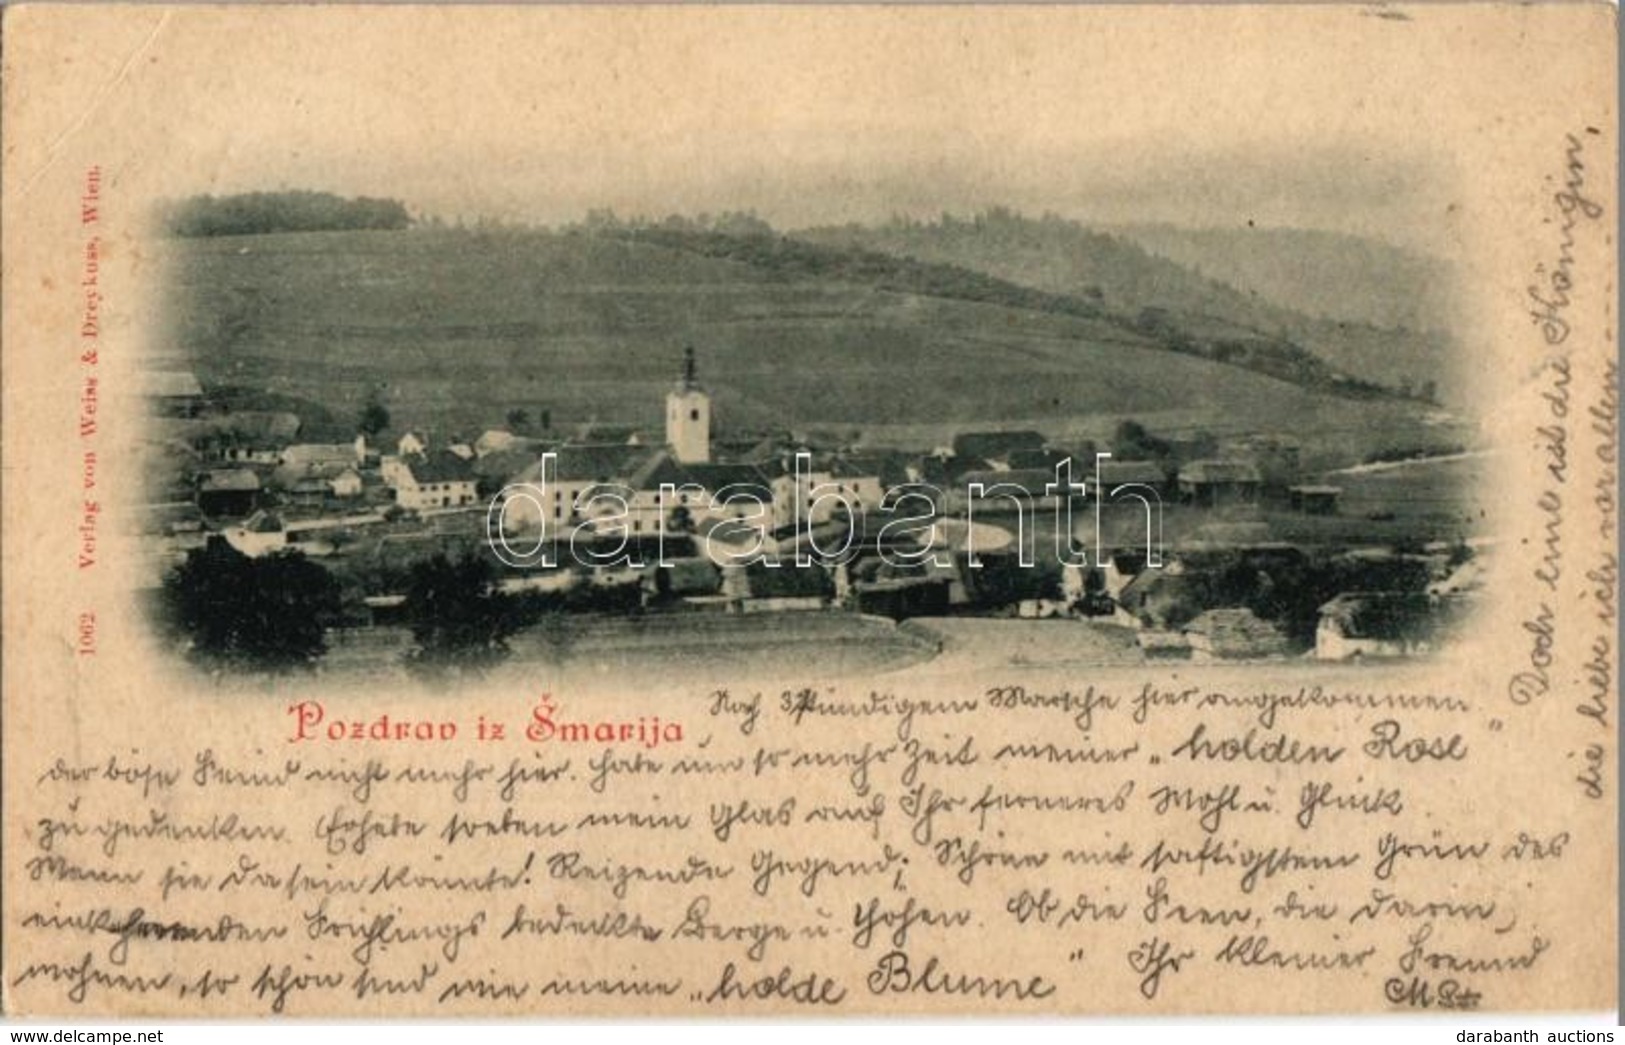 1062 Verlag von Weiss & Dreykuss, Wien.
Pozdrav iz Šmarija
Nach 3stündigem Marsche hier angekommen
der böse Feind nicht mehr hier. Habe um so mehr Zeit meiner „holden Rose"
zu gedenken. Erhebe soeben mein Glas auf Ihr ferneres Wohl u. Glück.
Wenn sie da sein könnte! Reizende Gegend; Schöne mit saftigstem Grün des
einkehrenden Frühlings bedeckte Berge u. Höhen. Ob die Feen, die darin
wohnen, so schön sind wie meine „holde Blume" Ihr kleiner Freund
Doch eine ist die Königin,
die liebe ich vor allen
darabanth
darabanth auctions